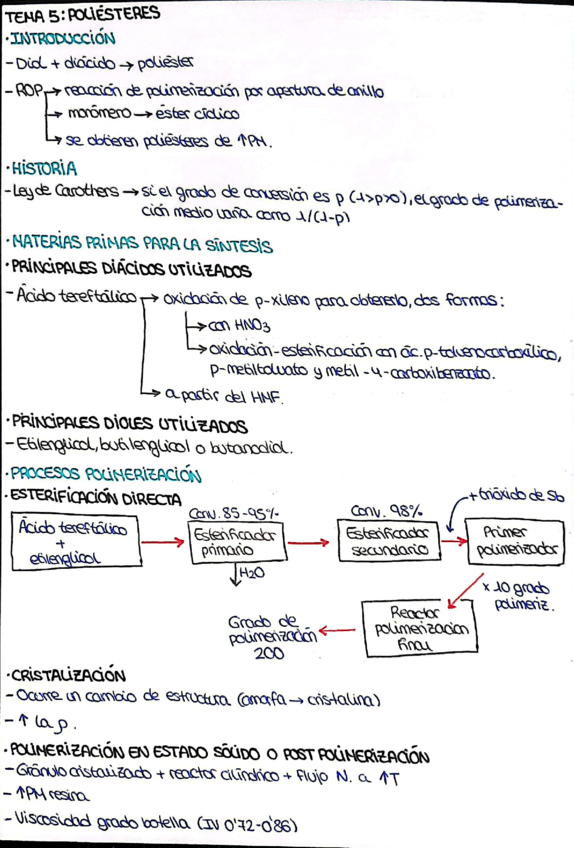 TEMA 5: POLIÉSTERES
·INTRODUCCIÓN
- Diol + diácido → poliéster
- ROP → reacción de polimerización por apertura de anillo
→ monómero → éster cíclico
→ se obtienen poliésteres de ↑PM.
·HISTORIA
- Ley de Carothers → si el grado de conversión es p (1>p>0), el grado de polimeriza-
ción medio varía como 1/(1-p)
·MATERIAS PRIMAS PARA LA SÍNTESIS
·PRINCIPALES DIÁCIDOS UTILIZADOS
- Ácido tereftálico → oxidación de p-xileno para obtenerlo, dos formas:
→ con HNO3
→ oxidación-esterificación con ác. p-toluenocarboxílico,
p-metiltoluato y metil-4-carboxibenzoato.
→ a partir del HNF.
·PRINCIPALES DIOLES UTILIZADOS
- Etilenglicol, butilenglicol o butanodiol.
·PROCESOS POLIMERIZACIÓN
·ESTERIFICACIÓN DIRECTA
Ácido tereftálico
+
etilenglicol
Conv. 85-95%
Esterificador
primario
H2O
Conv. 98%
Esterificador
secundario
+ trióxido de Sb
Primer
polimerizador
x 10 grado
polimeriz.
Reactor
polimerización
final
Grado de
polimerización
200
·CRISTALIZACIÓN
- Ocurre un cambio de estructura (amorfa → cristalina)
- ↑ la ρ.
·POLIMERIZACIÓN EN ESTADO SÓLIDO O POST POLIMERIZACIÓN
- Gránulo cristalizado + reactor cilíndrico + flujo N. a ↑T
- ↑PM resina
- Viscosidad grado botella (IV 0'72-0'86)